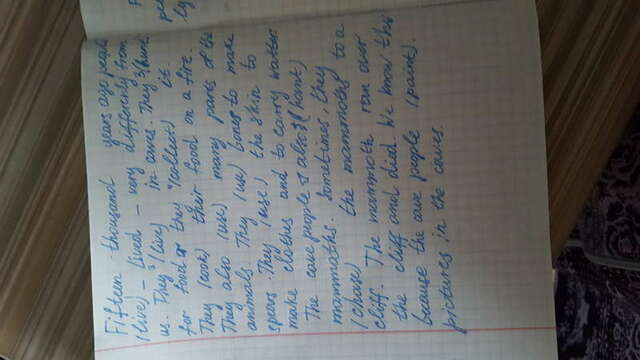 Fifteen thousand years ago people
(live) - Lived - very differently from
us. They ² (live) in caves. They ³ (hunt
for food or they ⁴ (collect) it.
They (cook) their food on a fire.
They also (use) many parts of the
animals. They (use) bones to make
spears. They (use) the skin to
make clothes and to carry watter.
The cave people also (hant)
mammoths. Sometimes, they
(chase) the mammoths to a
cliff. The mammoth ran over
the cliff and died. We know this
because the cave people (paint).
pictures in the caves.